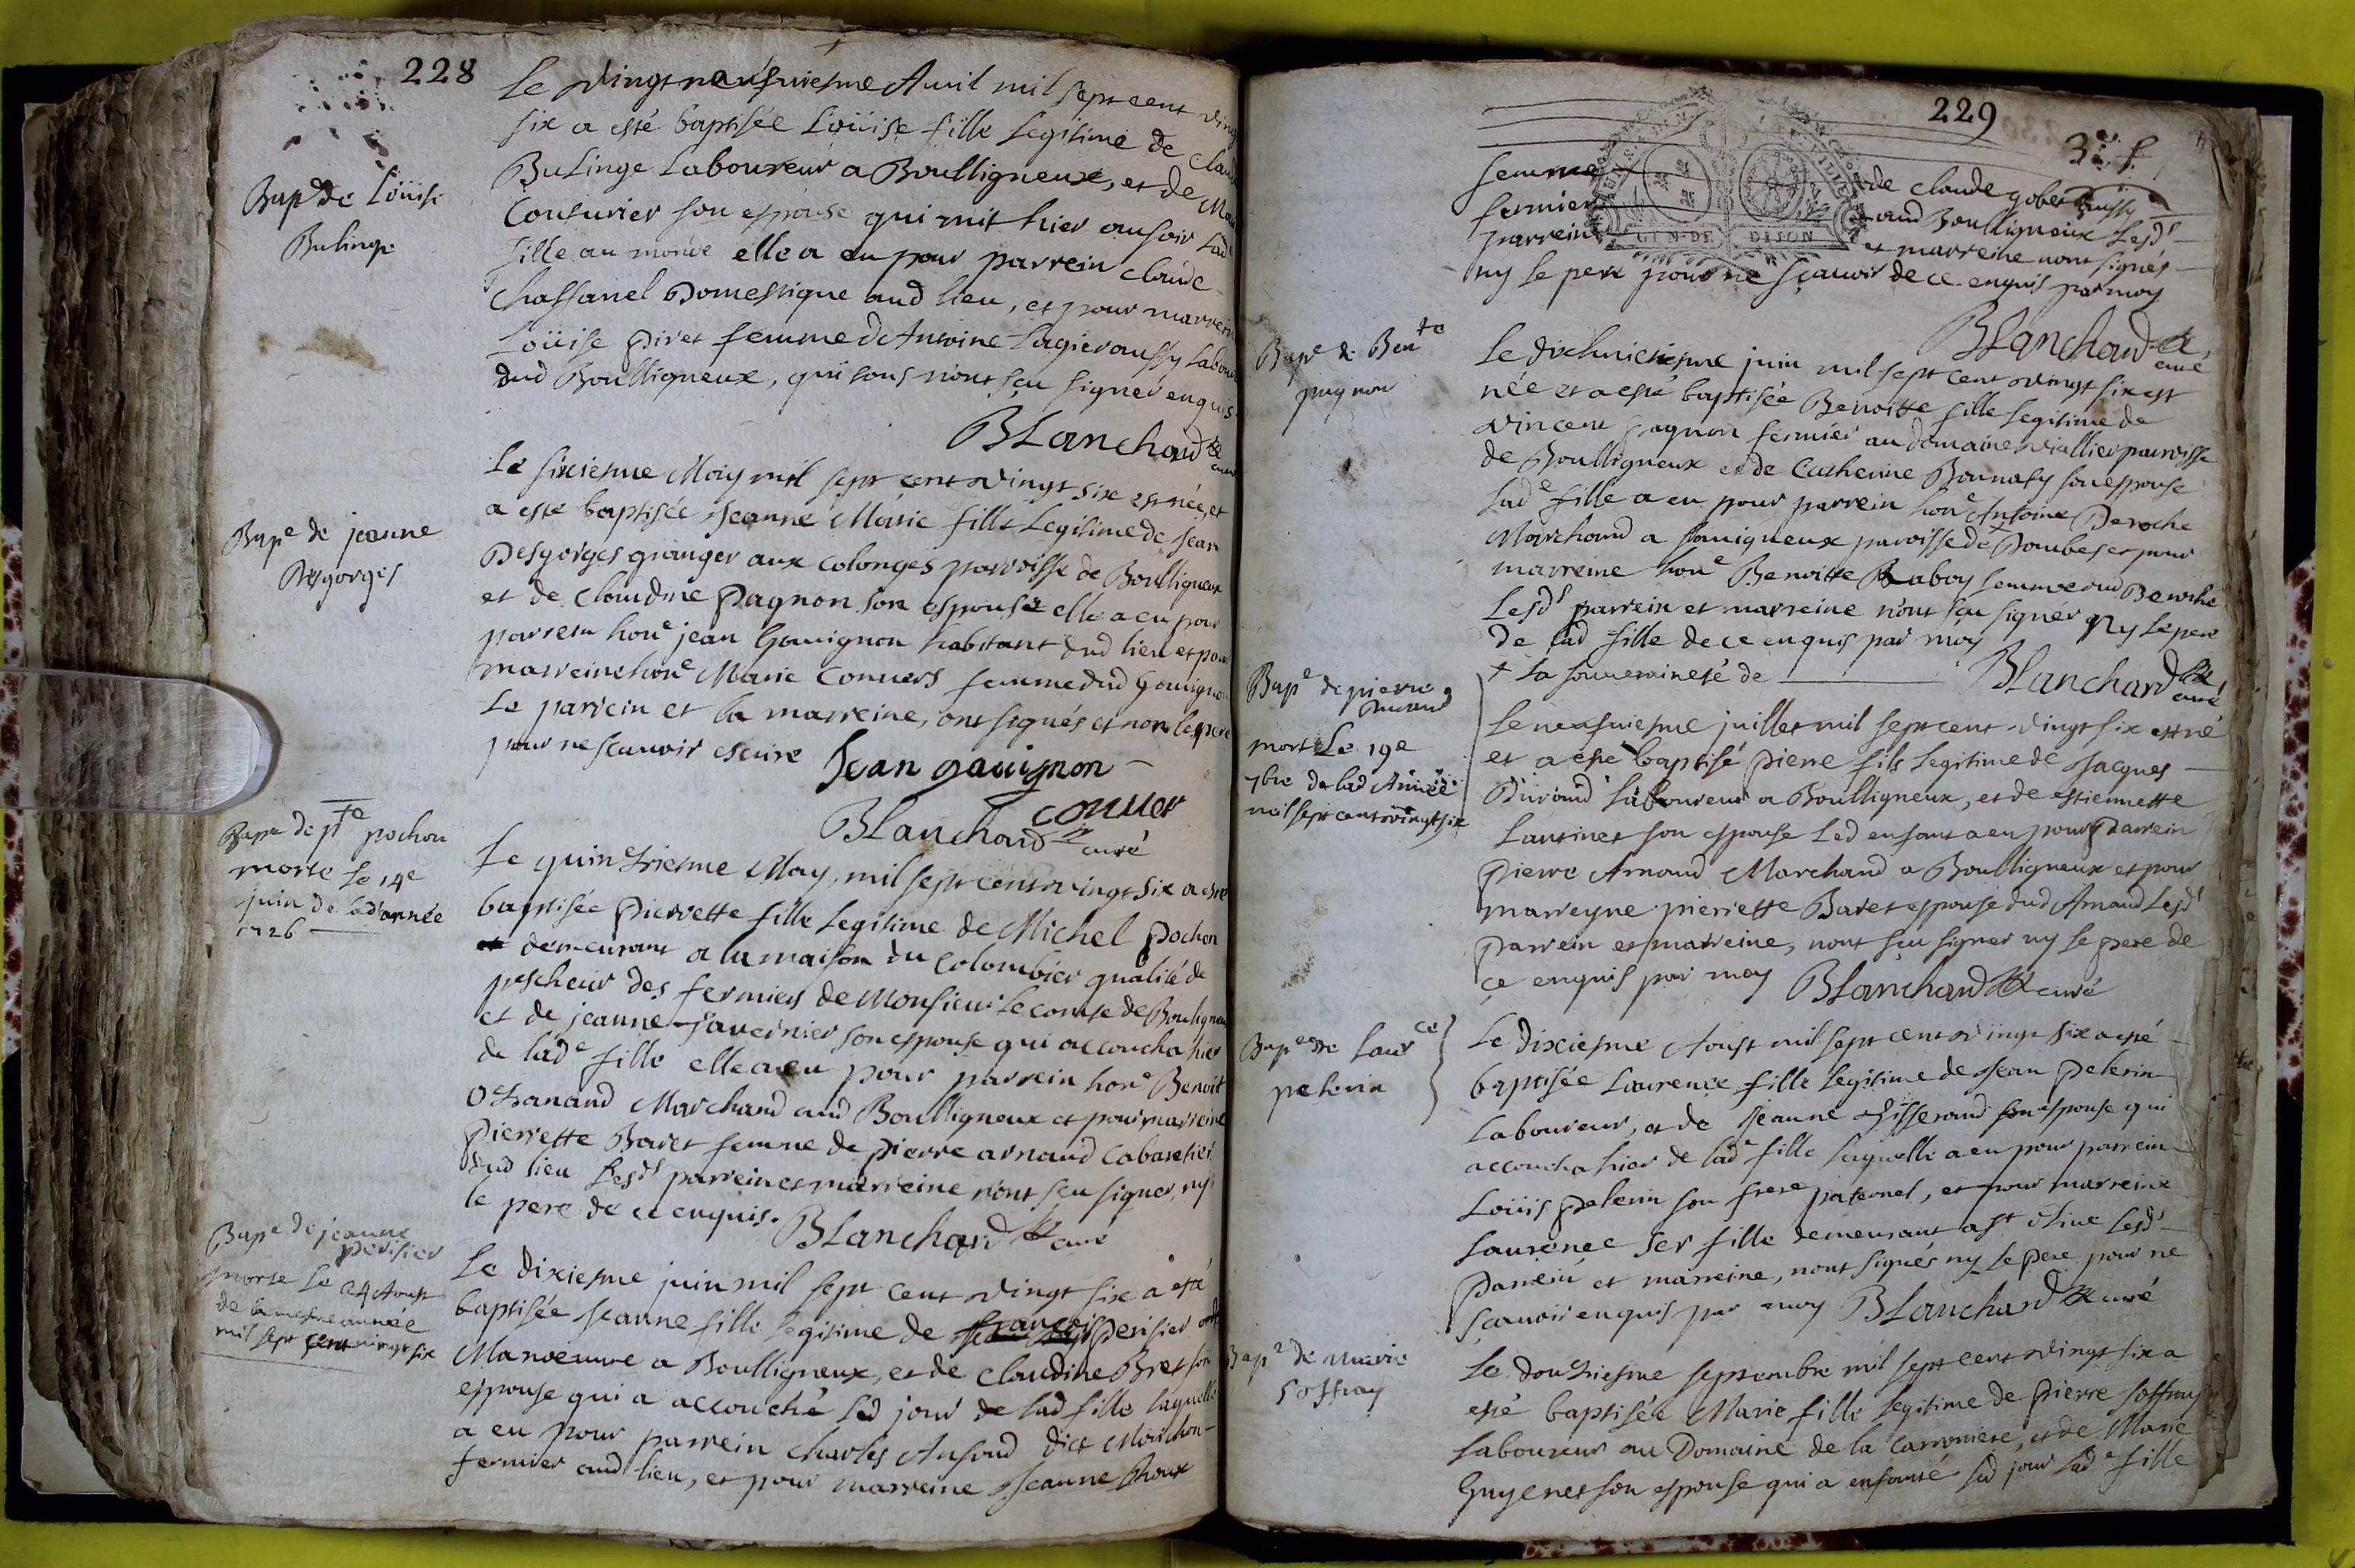 228
Le vingt neufviesme Avril mil sept cent vingt
six a esté baptisée Loüise fille legitime de Claude
Bulinge Laboureur a Boulligneux, et de
Couturier son espouse qui mit hier au soir lad
fille au monde elle a eu pour parrein claude
Chassanel Domestique aud lieu, et pour marreine
Loüise piret femme de Antoine Lagier aussy Laboureur
dud Boulligneux, qui tous n'ont sçu signer enquis
Blanchard curé
Bape de Loüise
Bulinge
Le sixiesme May mil sept cent vingt six est née, et
a esté baptisée Jeanne Marie fille Legitime de Jean
Desgorges granger aux Colonges parroisse de Boulligneux
et de Claudine Pagnon son espouse elle a eu pour
parrein hone jean Gavignon habitant dud lieu et pour
marreine hone Marie Convers femme dud Gavignon
Le parrein et la marreine, ont signés et non le pere
pour ne scauoir escrire Jean gauignon
conuer
Blanchard curé
Bape de jeanne
Desgorges
Le quinziesme May, mil sept cent vingt six a esté
baptisée pierrette fille Legitime de Michel pochon
demeurant a la maison du Colombier qualité de
pescheur des fermiers de Monsieur le comte de Bouligneux
et de jeanne son espouse qui accoucha hier
de lade fille elle a eu pour parrein hone Benoit
Marchand aud Boulligneux et pour marreine
pierrette Baret femme de pierre arnaud Cabaretier
dud lieu Lesds parrein et marreine n'ont sçu signer, ny
le pere de ce enquis. Blanchard curé
Bape de pte pochon
morte Le 14e
juin de lad année
1726
Le dixiesme juin mil sept cent vingt six a esté
baptisée Jeanne fille legitime de françois perisier
Manoeuvre a Boulligneux, et de Claudine Bret son
espouse qui a accouché led jour de lad fille laquelle
a eu pour parrein Charles Ansoud dict Morichon
fermier aud lieu, et pour marreine Jeanne Roux
Bape de jeanne
perisier
morte Le 24 Aoust
de la mesme année
mil sept cent vingt six
229
3e. f.
femme de claude gobet aussy
fermier aud Boulligneux Lesds
parrein et marreine n'ont signés
ny le pere pour ne sçauoir de ce enquis par moy
GEN. DE DIJON
Blanchard curé
Bape de Bente
pagnon
Le dixhuictiesme juin mil sept cent vingt six est
née et a esté baptisée Benoitte fille legitime de
vincent pagnon fermier au domaine viallier parroisse
de Boulligneux et de Catherine Bonnafy son espouse
lade fille a eu pour parrein hone Antoine Deroche
Marchand a Sauigneux paroisse de + Dombes et pour
marreine hone Benoitte Raboy femme dud Deroche
Lesds parrein et marreine n'ont sçu signér ny le pere
de lad fille de ce enquis par moy
+ La souueraineté de
Blanchard curé
Bape de pierre
Durand
mort Le 19e
7bre de lad Année
mil sept cent vingt six
Le neufviesme juillet mil sept cent vingt six est né
et a esté baptisé pierre fils Legitime de Jacques
Durand laboureur a Boulligneux, et de estiennette
Lautinet son espouse led enfant a eu pour parrein
pierre Arnaud Marchand a Boulligneux et pour
marreyne pierrette Baret espouse dud Arnaud Lesds
parrein et marreine, n'ont sçu signer ny le pere de
ce enquis par moy Blanchard curé
Bape de Laurce
pelerin
Le dixiesme Aoust mil sept cent vingt six a esté
baptisée Laurence fille Legitime de Jean pelerin
Laboureur, et de Jeanne Tisserand son espouse qui
accoucha hier de lade fille laquelle a eu pour parrein
Loüis pelerin son frere paternel, et pour marreine
Laurence Ser fille demeurant a st olive Lesds
parrein et marreine, n'ont signés ny le pere pour ne
sçauoir enquis par moy Blanchard curé
Bape de marie
soffray
Le douziesme septembre mil sept cent vingt six a
esté baptisée Marie fille legitime de pierre soffray
Laboureur au Domaine de la Carroniere, et de Marie
Guyenet son espouse qui a enfanté led jour lade fille